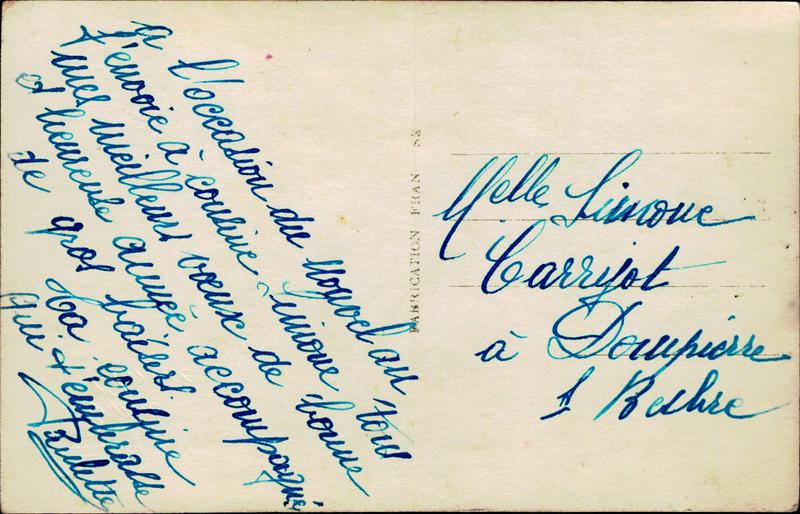 a l'occasion du nouvel an
t'envoie à cousine Simone tous
mes meilleurs vœux de bonne
et heureuse année accompagné
de gros baisers.
Ta cousine
qui t'embrasse
Paulette
FABRICATION FRAN SE
Melle Simone
à Dompierre
s/ Besbre